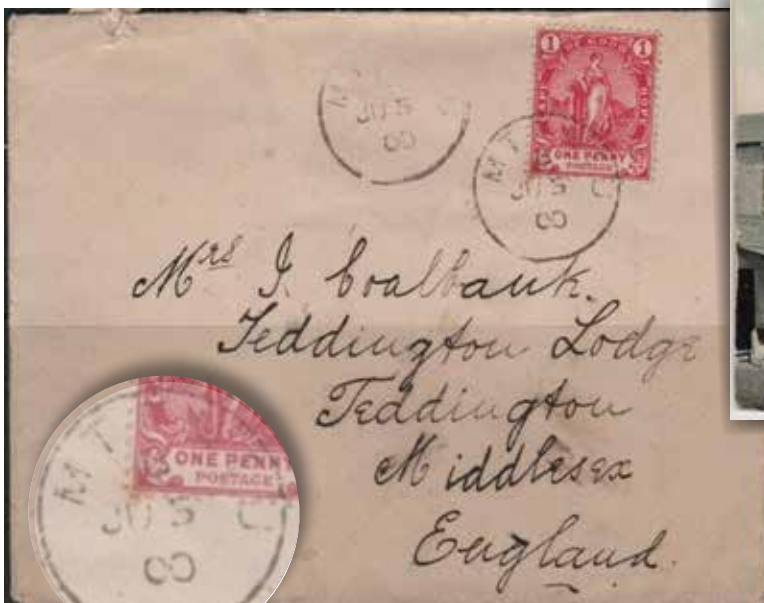 1 OF GOOD 1
HOPE
ONE PENNY
POSTAGE
M
JU 5
00
M T C
JU 5
00
Mrs J. Coalbank.
Teddington Lodge
Teddington
Middlesex
England.
ONE PENN
POSTAGE
M T C
JU 5
00